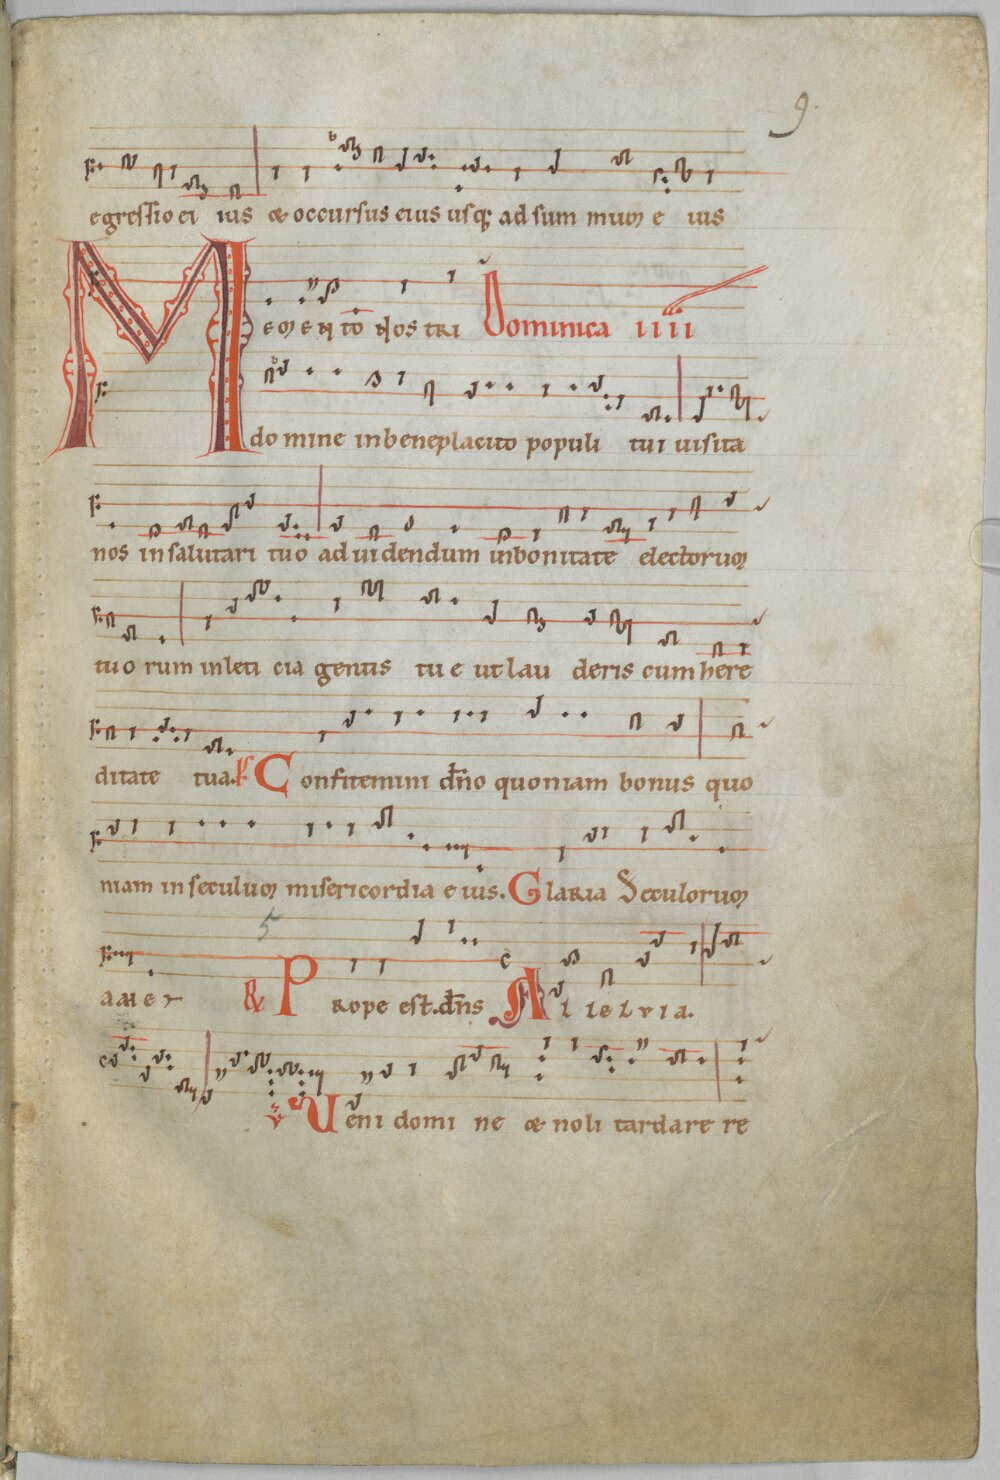 9.
egressio ei ius & occursus eius usq; ad sum mum e ius
MEMENTO NOSTRI Dominica IIII
domine inbeneplacito populi tui uisita
nos insalutari tuo aduidendum inbonitate electorum
tuo rum inleti cia gentis tu e utlau deris cum here
ditate tua. Ps Confitemini dn̄o quoniam bonus quo
niam inseculum misericordia eius. Glaria Seculorum
amen 5 & Prope est.dn̄s Alleluia.
℣ Ueni domi ne & noli tardare re